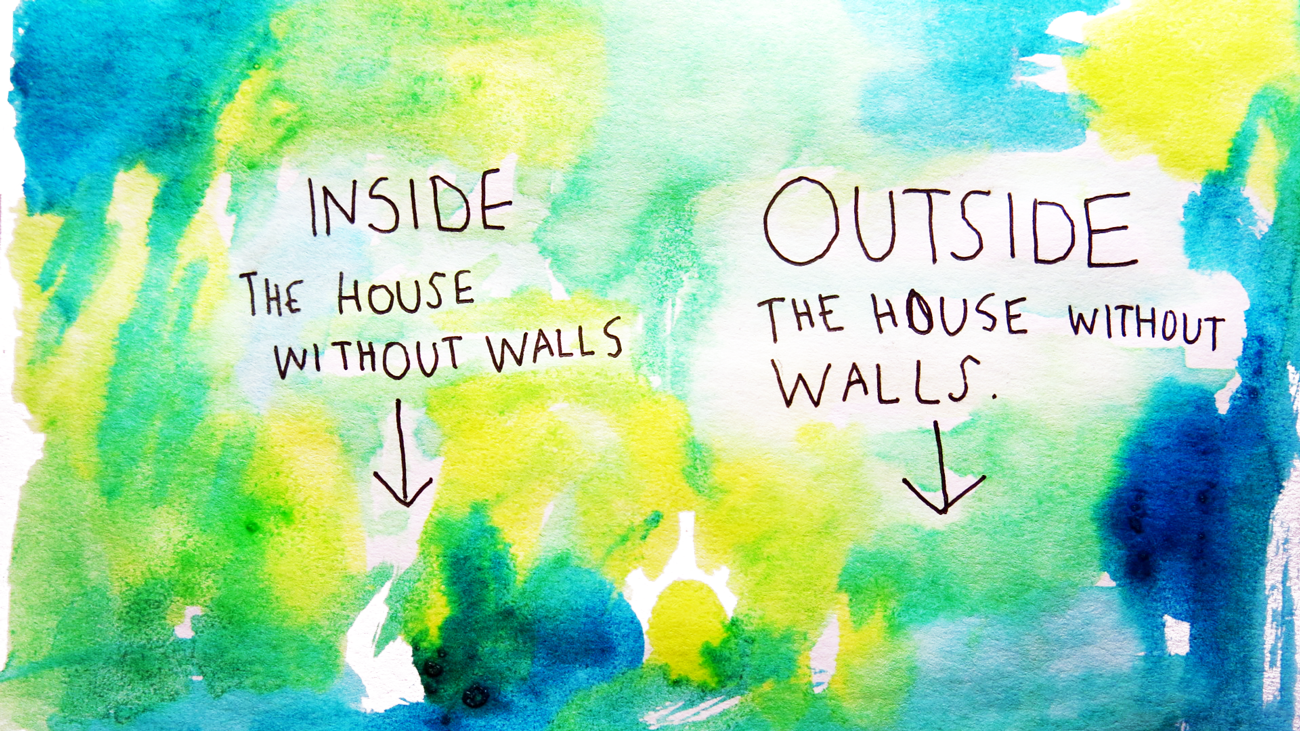 INSIDE
THE HOUSE
WITHOUT WALLS
OUTSIDE
THE HOUSE WITHOUT
WALLS.